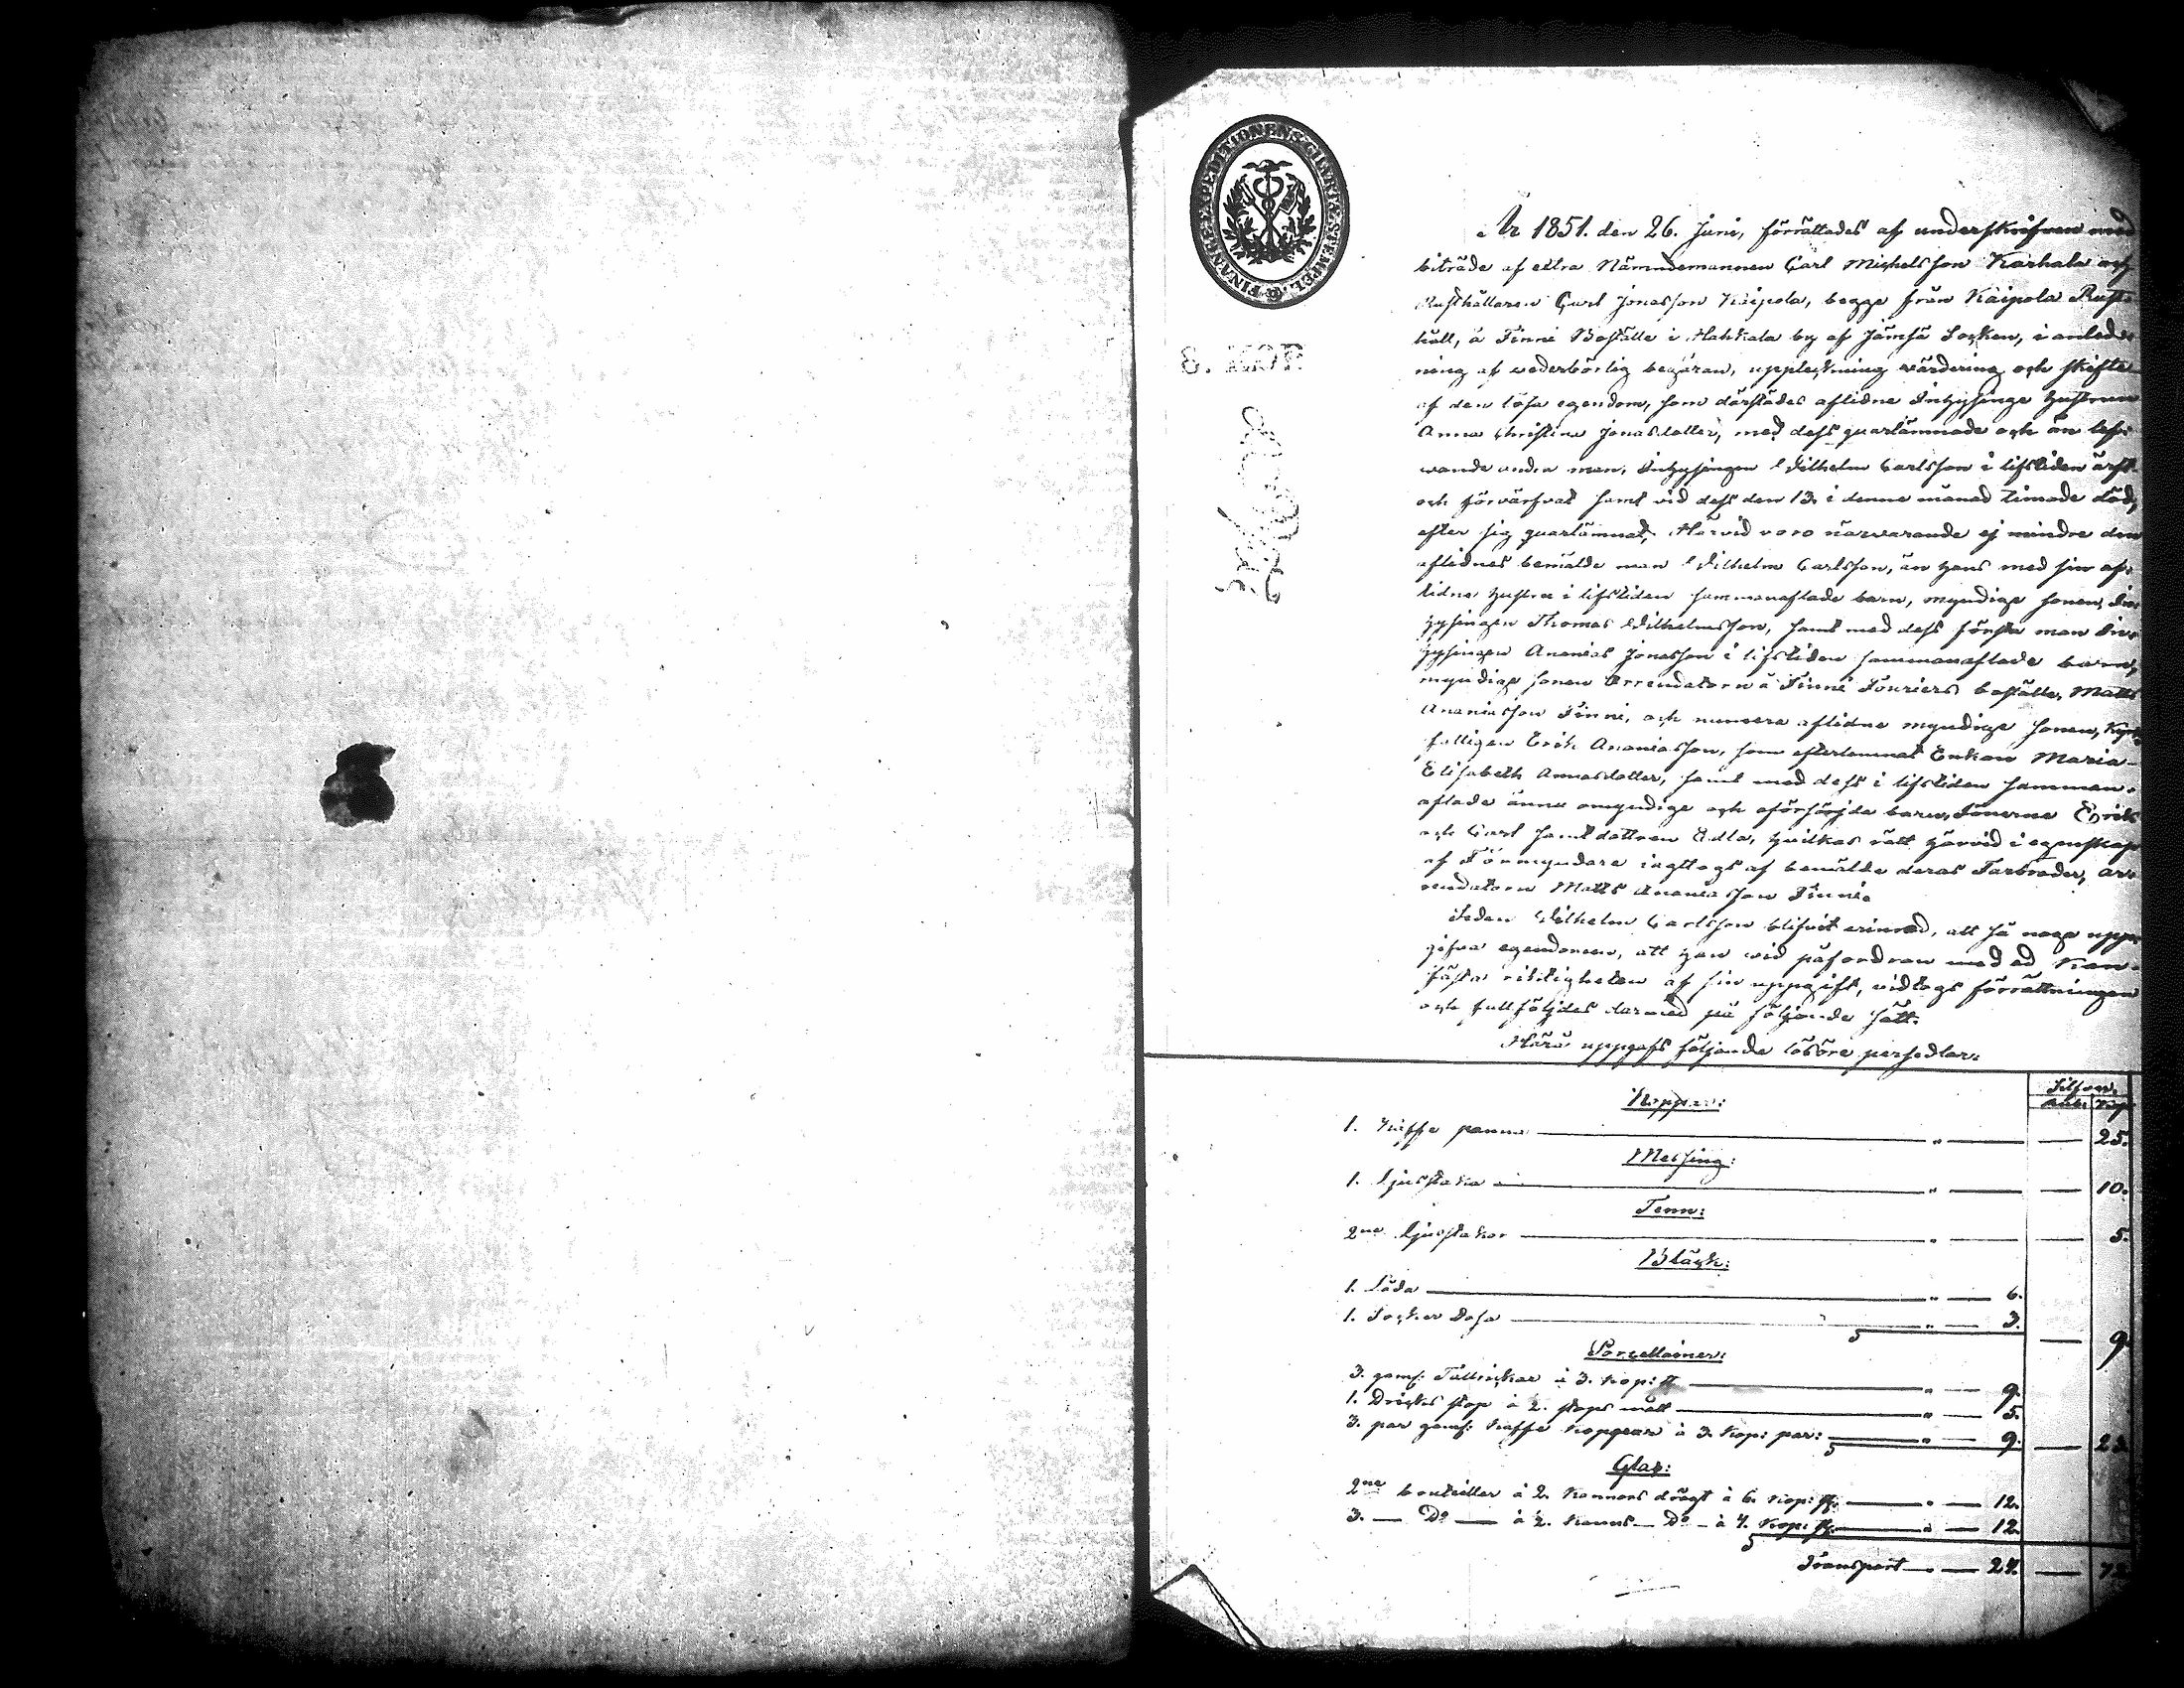 FINANCE EXPEDITIONENS CHARTÆ STEMPEL
6. KOP.
År 1851. den 26. Juni, förrättades af underskrifven med
biträde af extra Nämndemannen Carl Michelsson Karhala och
Rusthållaren Carl Jonasson Kaipola, begge från Kaipola Rust-
håll, å Finni Boställe i Hahkala by af Jämsä Socken, i anled-
ning af wederbörlig begäran, uppteckning wärdering och skifte
af den lösa egendom, som därstädes aflidne Inhysinge hustrun
Anna Christina Jonasdotter, med dess quarlämnade och än lef-
wande andra man, Inhysingen Wilhelm Carlsson i lifstiden ärft
och förvärfvat samt vid dess den 13. i denne månad timade död,
efter sig quarlämnat; Härvid voro närvarande ej mindre den
aflidnes bemälde man Wilhelm Carlsson, än hans med sin af-
lidna hustru i lifstiden sammanaflade barn, myndige sonen, In-
hysingen Thomas Wilhelmsson, samt med dess första man In-
hysingen Ananias Jonasson i lifstiden sammanaflade barn,
myndige sonen Arrendatorn å Finni Fouriers boställe, Matts
Ananiasson Finni, och numera aflidne myndige sonen,
Erik Ananiasson, som efterlemnat Enkan Maria
Elisabeth Annasdotter, samt med dess i lifstiden samman-
aflade ännu omyndige och oförsörjde barn, Sönerne Erik
och Carl samt dottren Edla, hvilkas rätt härvid i egenskap
af Förmyndare iagttogs af bemälde deras Farbroder, Ar-
rendatorn Matts Ananiasson Finni.
Sedan Wilhelm Carlsson blifvit erinrad, att så noga upp-
gifva egendomen, att han wid påfordran med ed kan
fästa riktigheten af sin uppgift, vidtogs förrättningen
och fullföljdes därmed på följande sätt.
Härå uppgafs följande lösöre persedlar:
Silfver.
Rub. Kop.
Koppar:
1. Kaffe panna — " — — 25.
Messing:
1. Ljusstaka — " — — 10.
Tenn:
2ne Ljusstakar — " — — 5.
Bläck:
1. Låda — " — 6.
1. Socker dosa — " — 3. — 9.
Porcellainer:
3. gamf: Tallrickar à 3. Kop: st — " — 9.
1. Dricks stop à 2. stops mått — " — 5.
3. par gamf: Kaffe Koppar à 3. Kop: par: — " — 9. — 23.
Glas:
2ne bouteiller à 2. Kannors drägt à 6. Kop: st. — " — 12.
3. — Do — à 2. Kanns — Do — à 4. Kop: st. — " — 12.
Transport — " — 24. — 72.